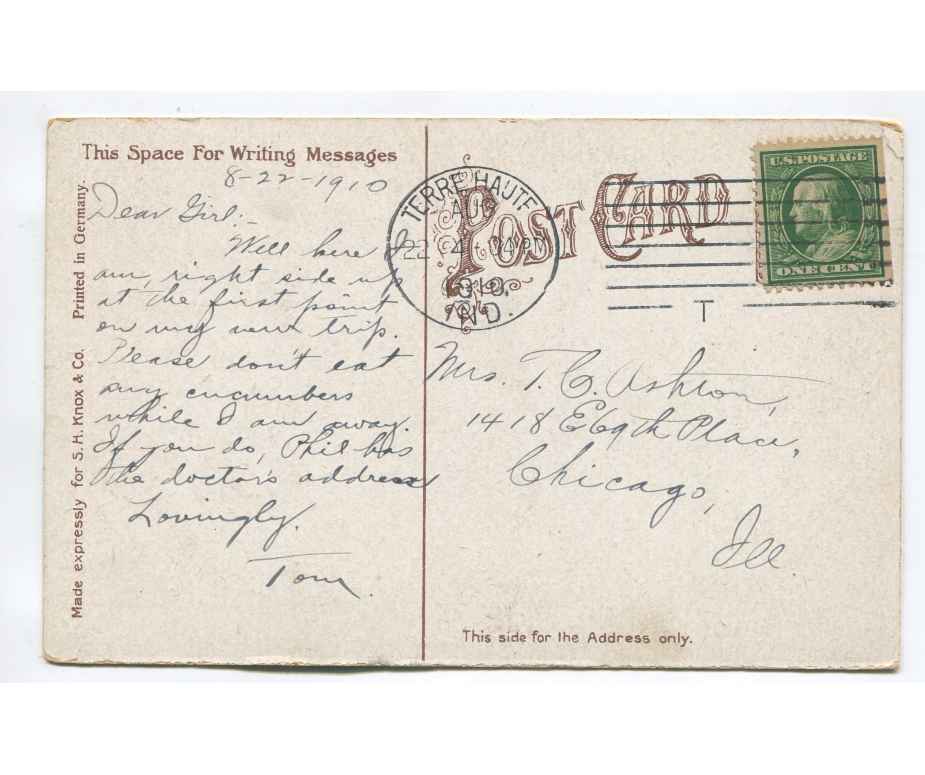 This Space For Writing Messages
8-22-1910
Dear Girl:-
Well here I
am, right side up
at the first point
on my new trip.
Please don't eat
any cucumbers
while I am away.
If you do, Phil has
the doctor's address
Lovingly.
Tom
Made expressly for S.H. Knox & Co. Printed in Germany.
POST CARD
TERRE HAUTE
AUG
22
1910
IND.
T
U.S. POSTAGE
ONE CENT
Mrs. T. C. Ashton,
1418 E 69th Place,
Chicago,
Ill.
This side for the Address only.